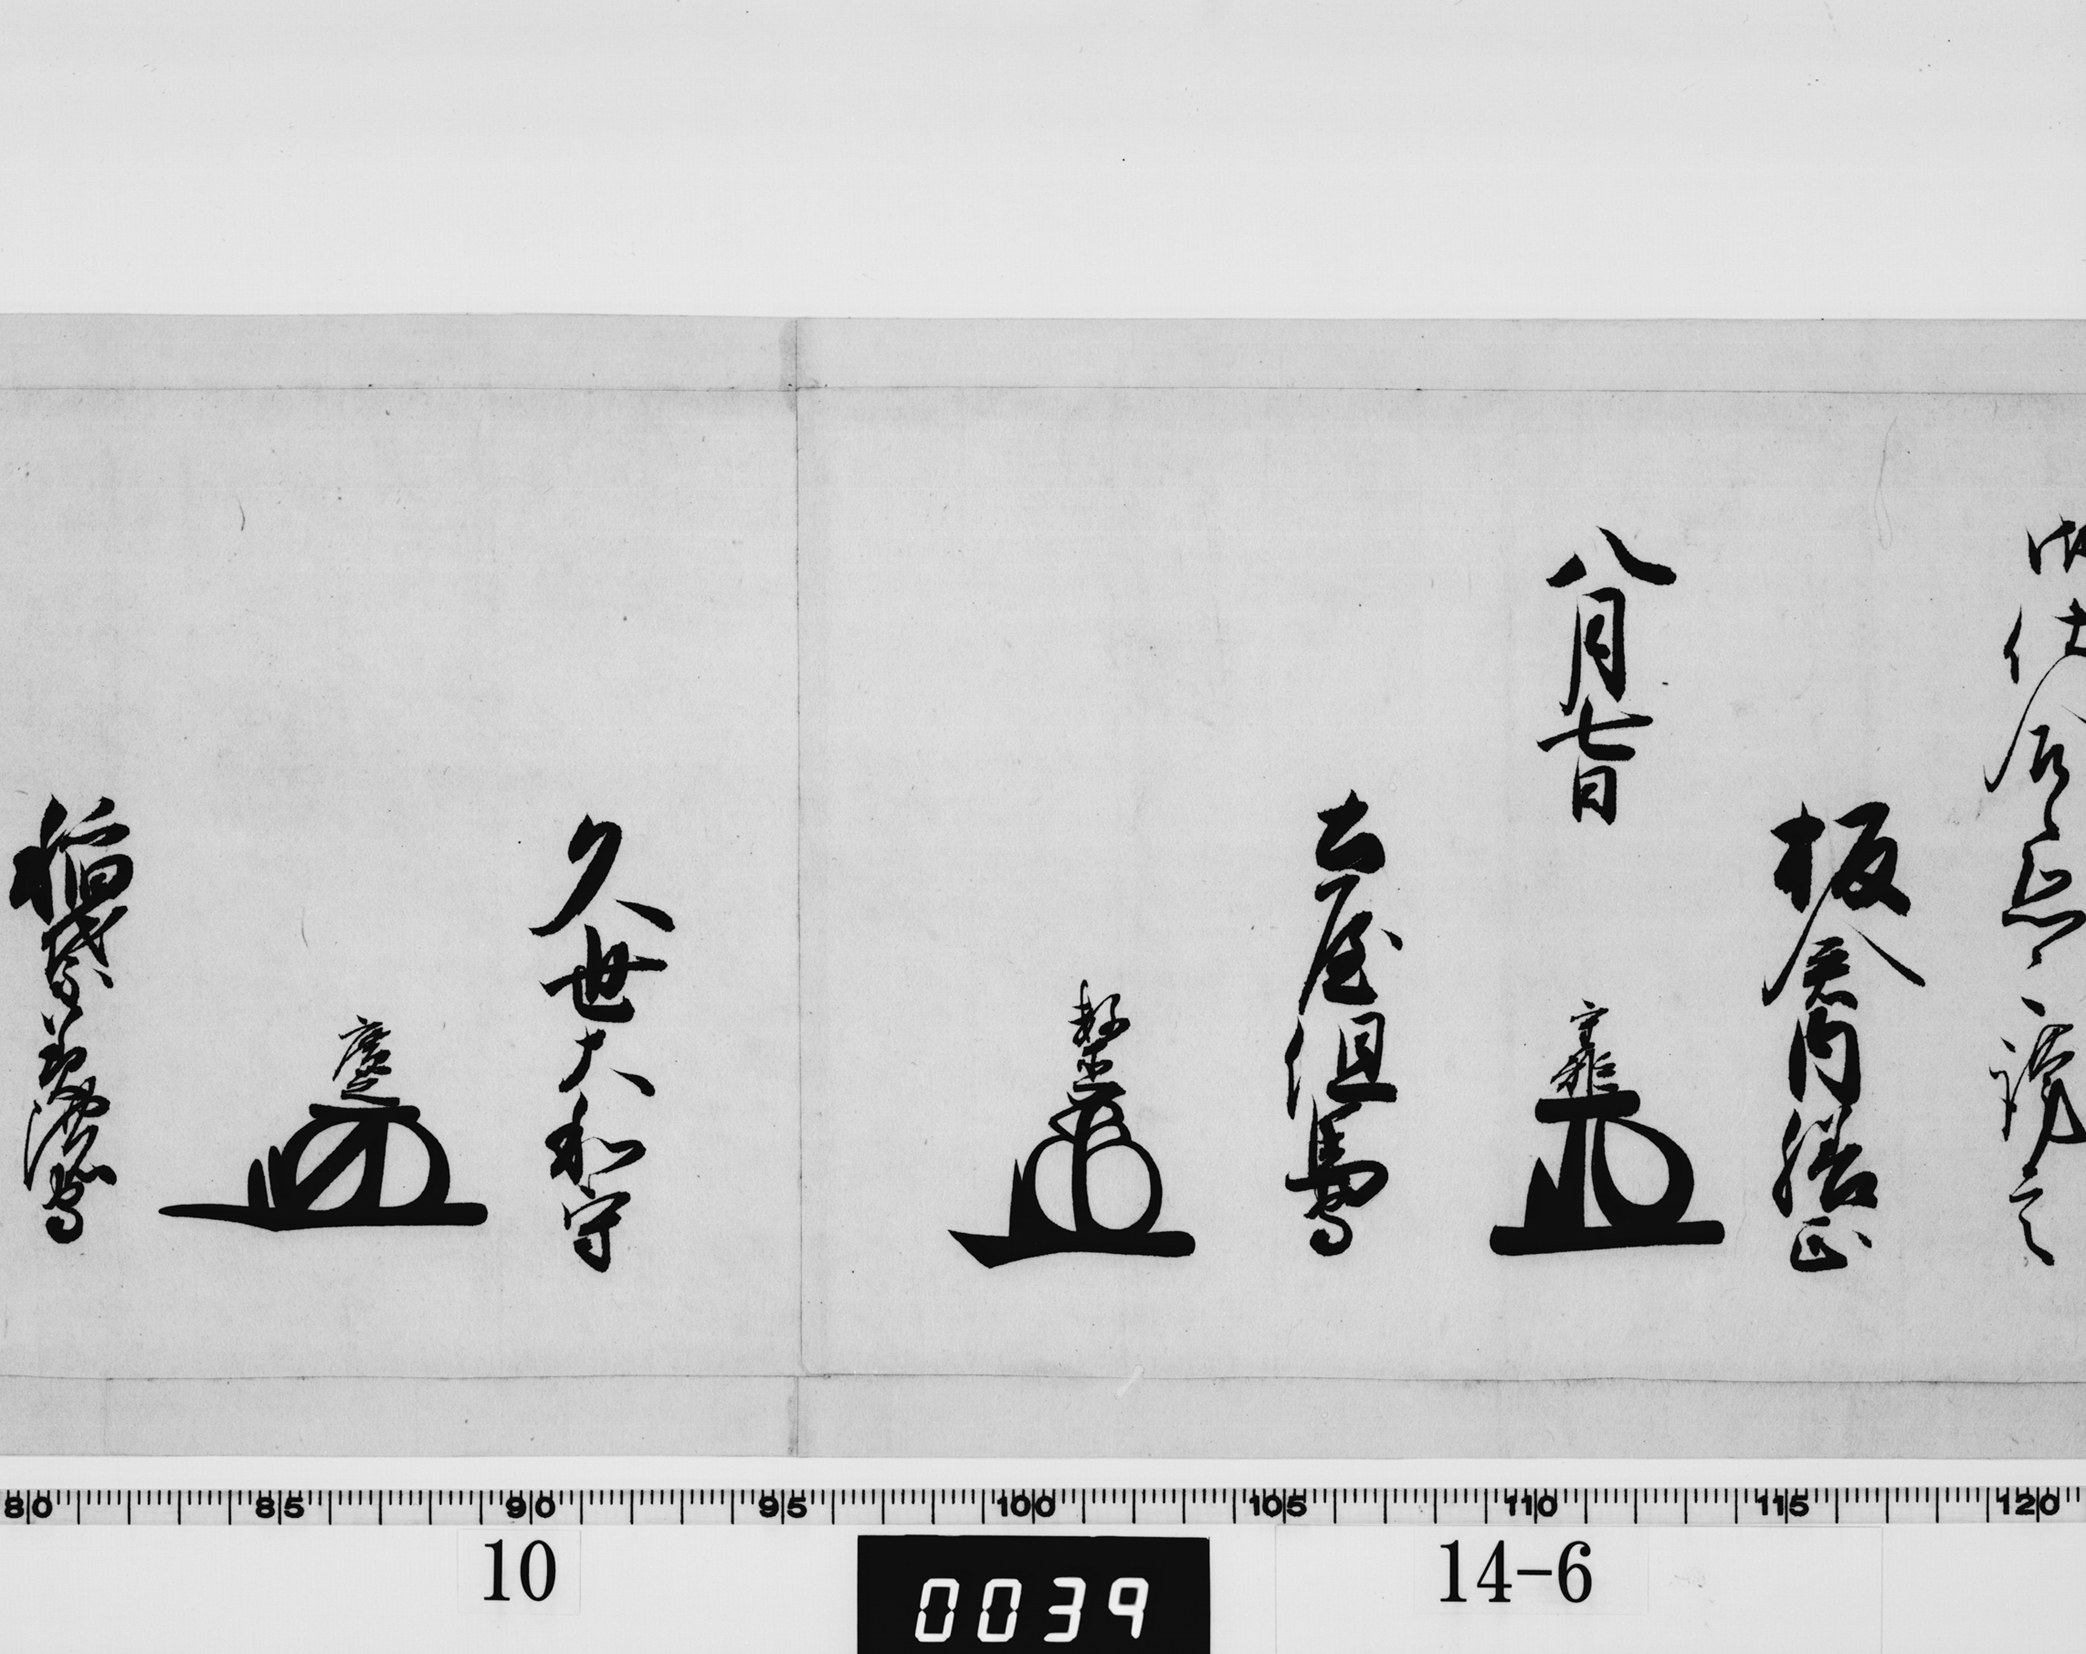 御仕合候恐々謹言
板倉内膳正
八月七日 重矩
土屋但馬守
数直
久世大和守
廣之
稲葉美濃守
80 85 90 95 100 105 110 115 120
10 0039 14-6